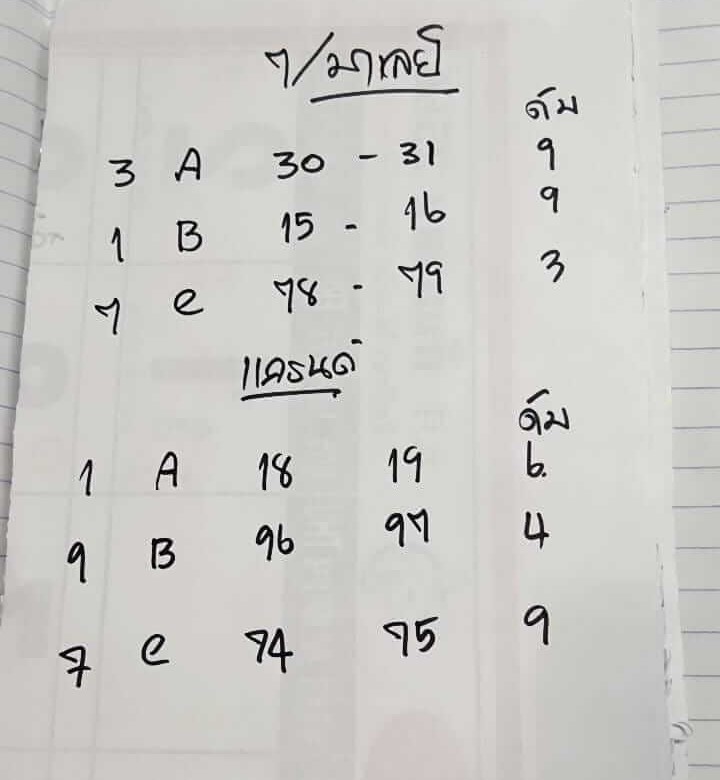 7/มาเลย์
ดับ
3 A 30 - 31 9
1 B 15 - 16 9
7 C 78 - 79 3
แกรนด์
ดับ
1 A 18 19 6.
9 B 96 97 4
7 C 74 75 9